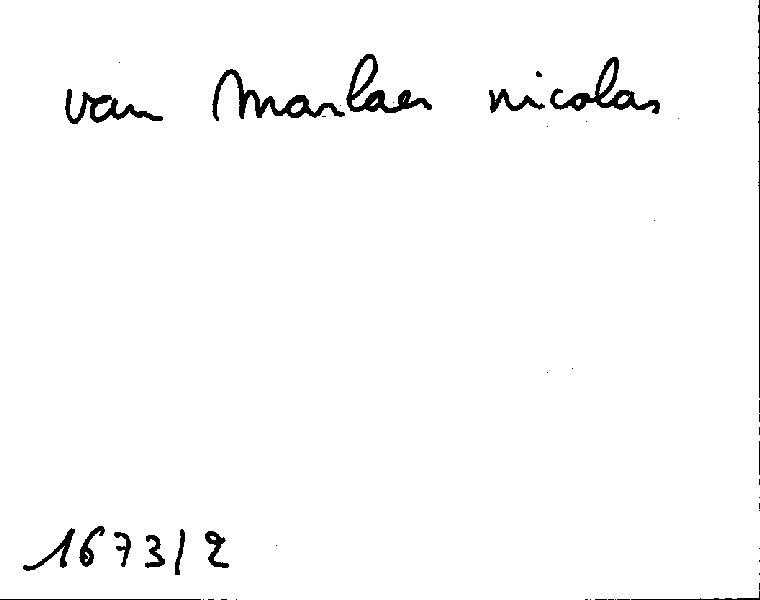 van Marlaer nicolas
1673/2